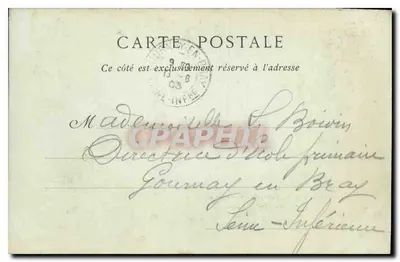 CARTE POSTALE
Ce côté est exclusivement réservé à l'adresse
Mademoiselle S Boivin
CPAPHIL
Directrice d'école primaire
Gournay en Bray
Seine-Inférieure